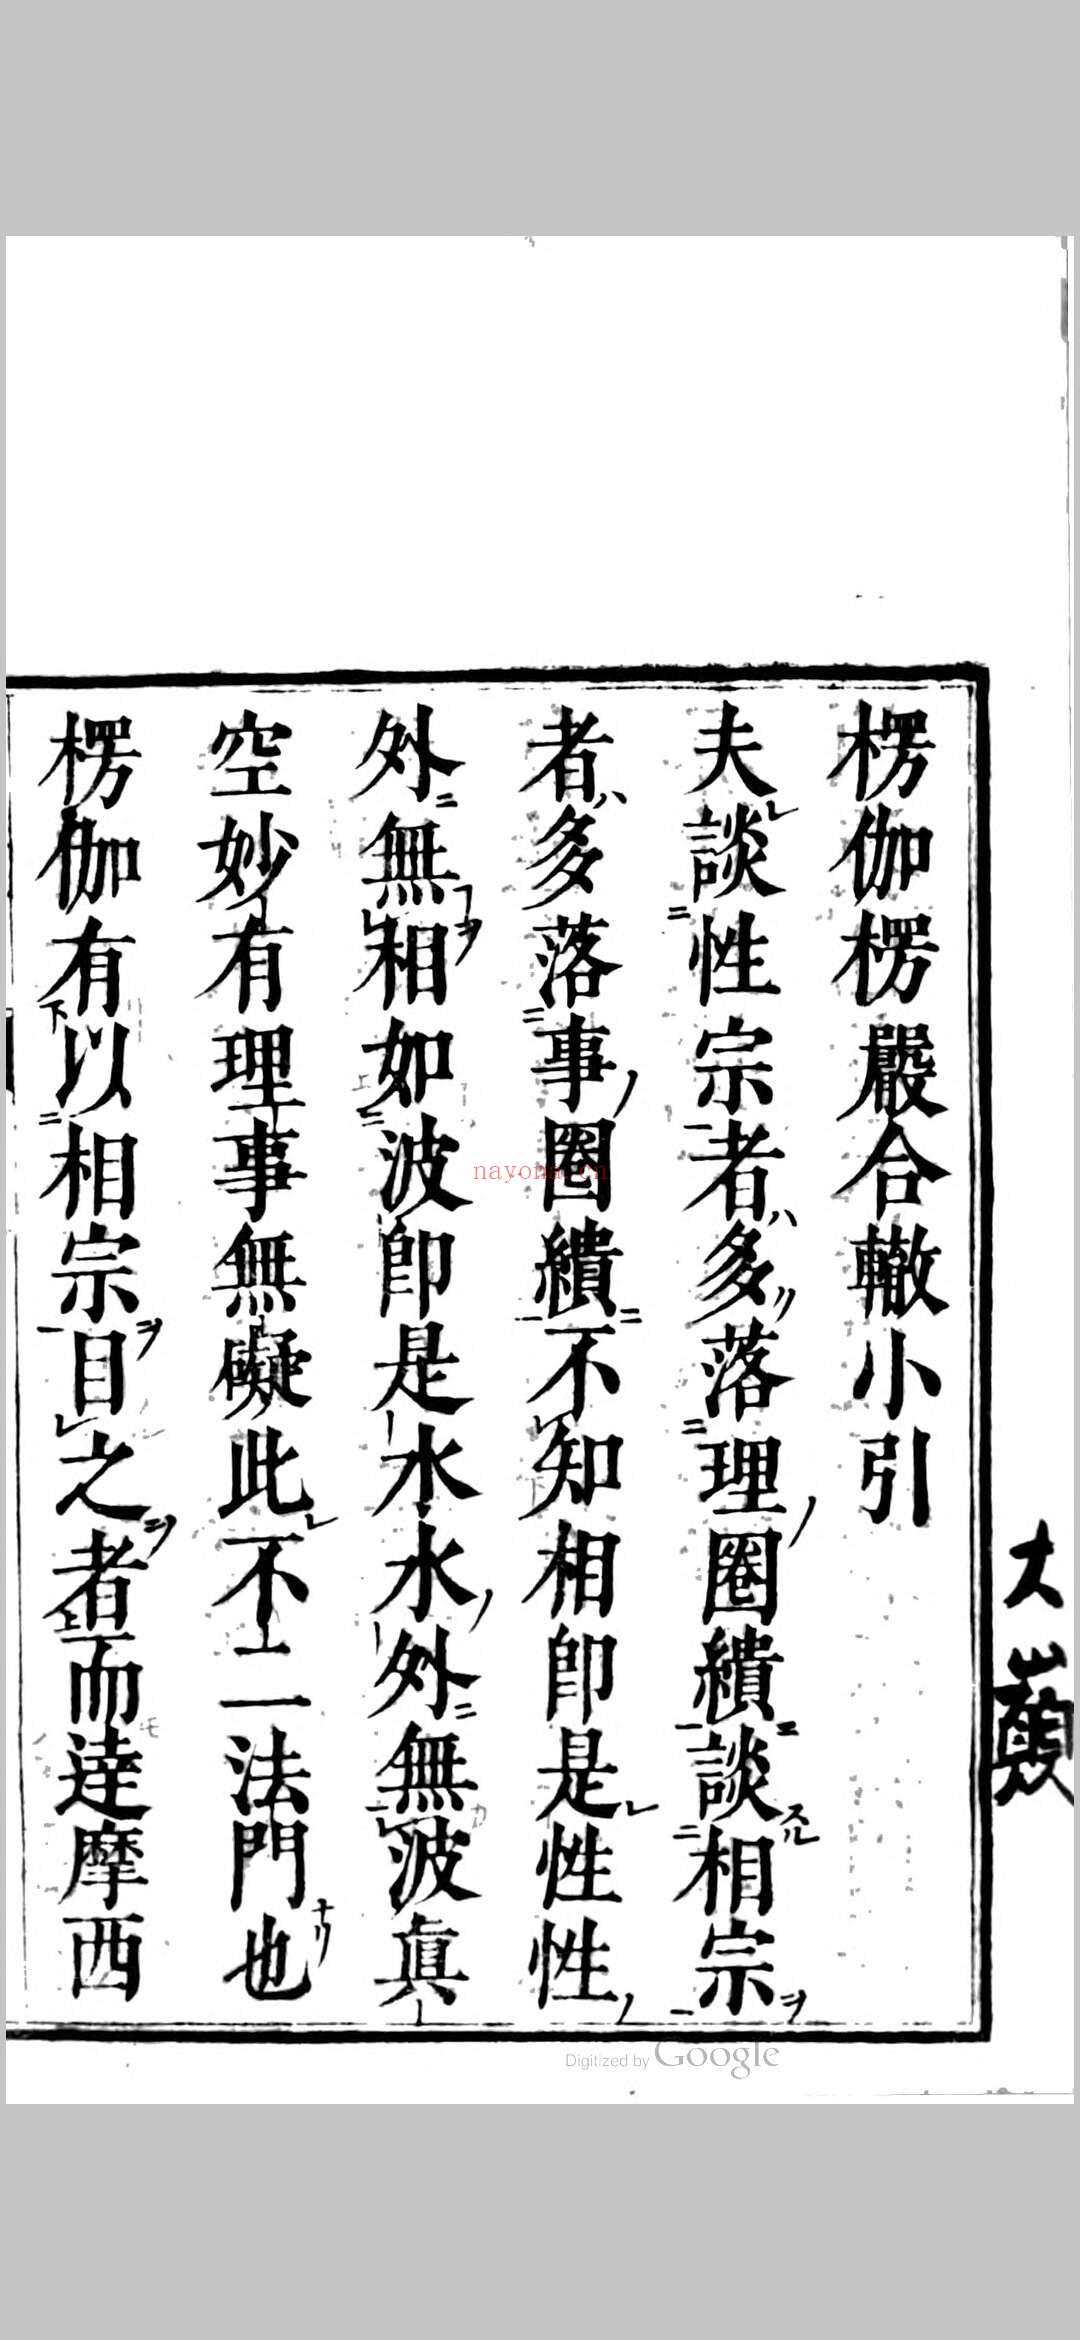 大巓
楞伽楞嚴合轍小引
夫談性宗者多落理圈繢談相宗
者多落事圈繢不知相卽是性性
外無相如波卽是水水外無波眞
空妙有理事無礙此不二法門也
楞伽有以相宗目之者而達摩西
nayona.cn
Digitized by Google